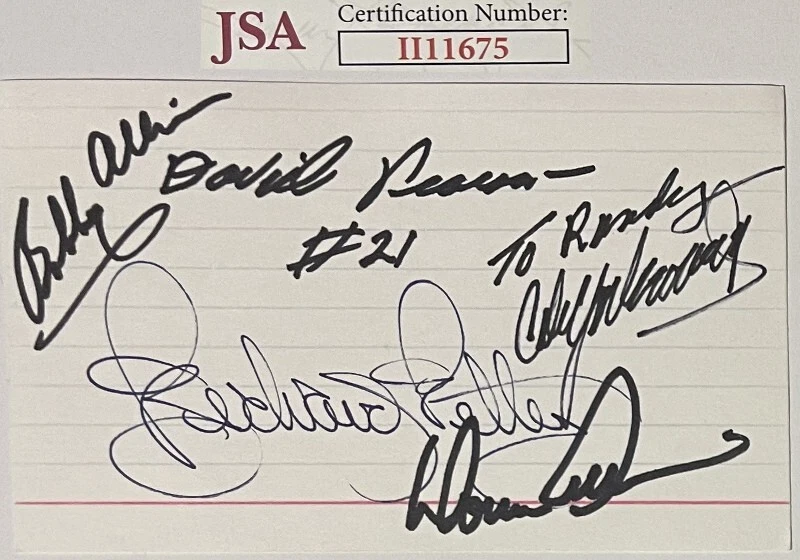 JSA
Certification Number:
II11675
Bobby Allison
David Pearson
#21
To Randy
Cale Yarborough
Richard Petty
Donnie Allison